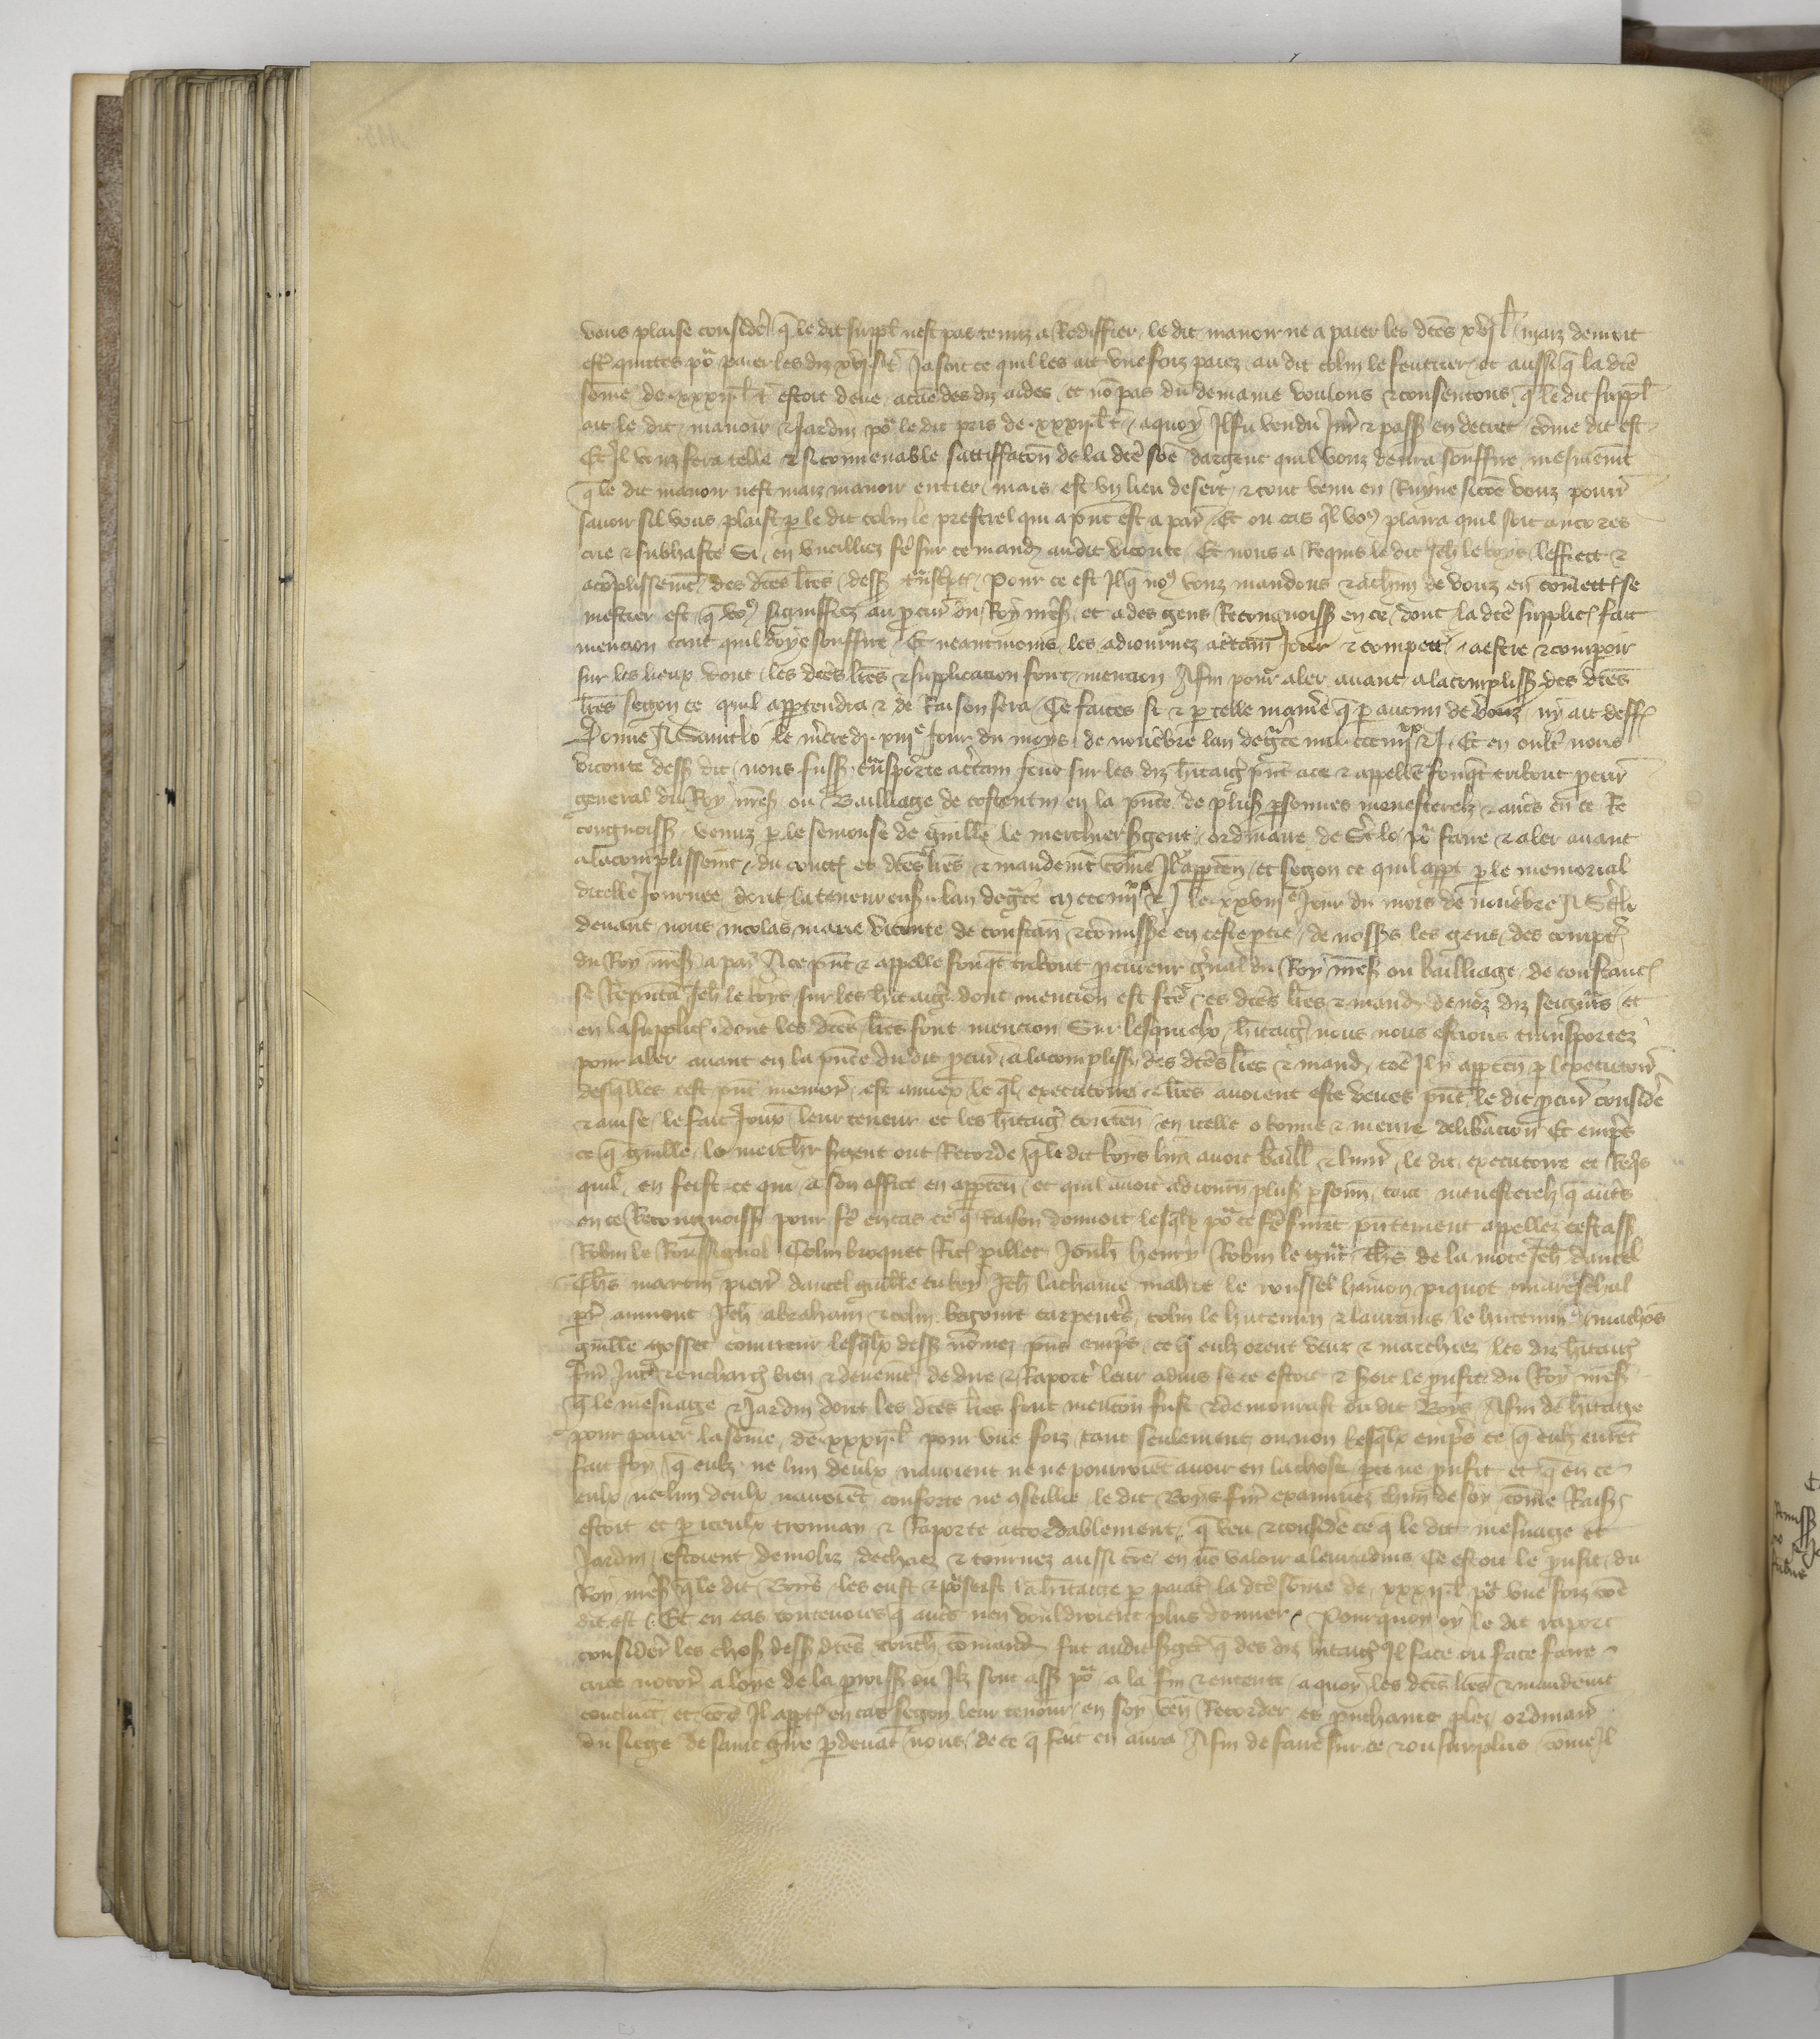 vous plaise considerer q̃ le dit suppl' nest pas tenuz a Rediffier le dit manoir ne a paier les dc̃es xvj l' maiz demeure
estre quittes po᷑ paier les diz xvj l' Ja soit ce quil les ait une foiz paiez au dit colin le feutrier et aussi q̃ la dc̃e
som̃e de xxxij l' t estoit deue a cãe des diz aides et nõ pas du demaine voulons & consentons q̃ le dit suppl'
ait le dit manoir & Jardin po᷑ le dit pris de xxxij l' t aquoy Il fu vendu & passe en decret com̃e dit est
Et Il vous fera telle & si convenable satiffacõn de la dc̃e sõe dargent quil vous devra souffire mesmem̃t
q̃ le dit manoir nest maiz manoir entier mais est un lieu desert & tout venu en Ruyne si cõe vous pourr̃
savoir sil vous plaist p le dit colin le prestrel qui a p̃nt est a par̃ Et ou cas q̃l vo⁹ plaira quil soit ancores
crie & subhaste Si en vueilliez fẽ sur ce mand' audit viconte Et nous a Requis le dit Jeh̃ le boys leffect &
acõplissemẽt des dc̃es lr̃es dess' transcp̃tes Pour ce est Il q̃ no⁹ vous mandons & de vous en com̃ettr̃ se
mestier est q̃ vo⁹ signiffiez au p̃cur̃ du Roy nr̃es' et a des gens Recongnoiss' en ce dont la dc̃e supplic' fait
mencion tant quil doye souffire Et neantmoins les adiournez a cc̃tain Jour & compett' a estre & comparoir
sur les lieux dont les dc̃es lr̃es & supplicacion font mencion Afin pour aler avant a lacompliss' des dc̃es
lr̃es selon ce quil appartendra & de Raison sera Ce faites si & p telle manĩe q̃ p aucun de vous ny ait deff'
Donne A Saint lo le m̃credi xiiije Jour du moys de novẽbre lan de gr̃ce mil ccc iiijxx & J Et en oultr̃ nous
viconte dess' dit nous fuss' trãsporte a cc̃tain Jour sur les diz hr̃itaig' p̃nt a ce & appelle fouq̃t tribout p̃cur̃
general du Roy nr̃es' ou Bailliage de costentin en la p̃nce de plus' p̃sonnes menesterelz & autr̃s en ce Re
congnoiss' venuz p le semonse de guill'e le merchier s'gent ordinaire de St lo po᷑ faire & aler avant
a lacomplissem̃t du cont' es dc̃es lr̃es & mandem̃t com̃e Il appten' et selon ce quil appt p le memorial
dicelle Journee dont la teneur ens' lan de gr̃ce m ccc iiijxx & J le xxviije Jour du mois de novẽbre A St lo
devant nous nicolas marie viconte de constan' & com̃issr̃e en ceste ptie de noss'rs les gens des compt'
du Roy nr̃es' a par' A ce p̃nt & appelle fouq̃t tribout p̃cureur gñal du Roy nr̃es' ou bailliage de constanc'
se Repñta Jeh̃ le boys sur les hr̃itaig' dont mencion est fc̃e es dc̃es lr̃es & mand' de noz diz seigñrs et
en la supplic' dont les dc̃es lr̃es font mencion Sur lesquielx hr̃itaig' nous nous estions transportez
pour aler avant en la p̃nce du dit p̃cur̃ a lacompliss' des dc̃es lr̃es & mand' cõe Il y appten' p lexecutoir̃
desq̃lles cest p̃nt memor' est annexe le q̃l executoire & lr̃es avoient este veues p̃nt le dit p̃cur̃ consider̃
& avise le fait Joux leur teneur et les hr̃itaig' conten' en icelle o bonne & meure deliberacion Et emp̃s
ce q̃ guill'e le merch'r s'gent out Recorde q̃ le dit boys luy avoit baill' & livr' le dit executoire et Req̃s
quil en feist ce qui a son office en appten' et quil avoit adiourn' plus' p̃sonn' tant menesterelz q̃ autr̃s
en ce Recongnoiss' pour fẽ en cas ce q̃ Raison donnoit lesq̃lx po᷑ ce fẽ furẽt p̃ntement appellez cest ass'
Robin le Roussignol Colin briquet Ric' pillet Jouh' henry Robin le gñt Th̃s de la mote Jeh̃ dancel
Th̃s martin pierr̃ dancel guill'e tubey Jeh̃ lachaine mahie le roussel hamon piquot mareschal
pr̃ aumont Jeh̃ abraham & colin begoune carpent̃s colin le hutemin & laurains le hutemin machõs
guill'e gosset couvreur lesq̃lx dess' nõmez p̃ns emp̃s ce q̃ eulz orent veuz & marchiez les diz hr̃itaig'
fur̃ Jur̃ & encharg' bien & deuem̃t de dire & Raport' leur advis se ce estoit & seroit le p̃ufit du Roy nr̃es'
q̃ le mesnage & Jardin dont les dc̃es lr̃es font mencõn fust & demourast ou dit Boys Afin de hr̃itaige
pour paier la som̃e de xxxij l' pour une foiz tant seulement ou non lesq̃lx emp̃s ce q̃ eulz eurẽt
fait foy q̃ eulz ne lun deulx navoient ne ne pourroiẽt avoir en la chose pte ne p̃ufit et q̃ en ce
eulx ne lun deulx navoiẽt conforte ne cseillie le dit Boys fur̃ examinez chũn de soy com̃e Rais'
estoit et p iceulx trouvay & Raporte accordablement q̃ veu & considẽ ce q̃ le dit mesnage et
Jardin estoient demoliz dechaiez & tournez aussi cõe en nõ valoir a leur advis Ce estoit le p̃ufit du
Roy nr̃es' q̃ le dit Boys les eust & po᷑seist a hr̃itaige p paiãt la dc̃e som̃e de xxxij l' po᷑ une foiz cõe
dit est Et en cas toutevoies q̃ autr̃s nen vouldroient plus donner Pourquoy oy le dit raport
consider̃ les chos' dess' dc̃es com̃and' fut audit s'gẽt q̃ des diz hr̃itaig' Il face ou face faire
criee notor' a loye de la p̃roiss' ou Ilz sont ass' po᷑ a la fin & entente a quoy les dc̃es lr̃es & mandem̃t
concluẽt et cõe Il appt' en cas selon leur teneur en soy ven' Recorder es p̃uchains plez ordinair̃
du siege de saint gire p devãt nous de ce q̃ fait en aura Afin de faire sur ce & ou surplus com̃e Il